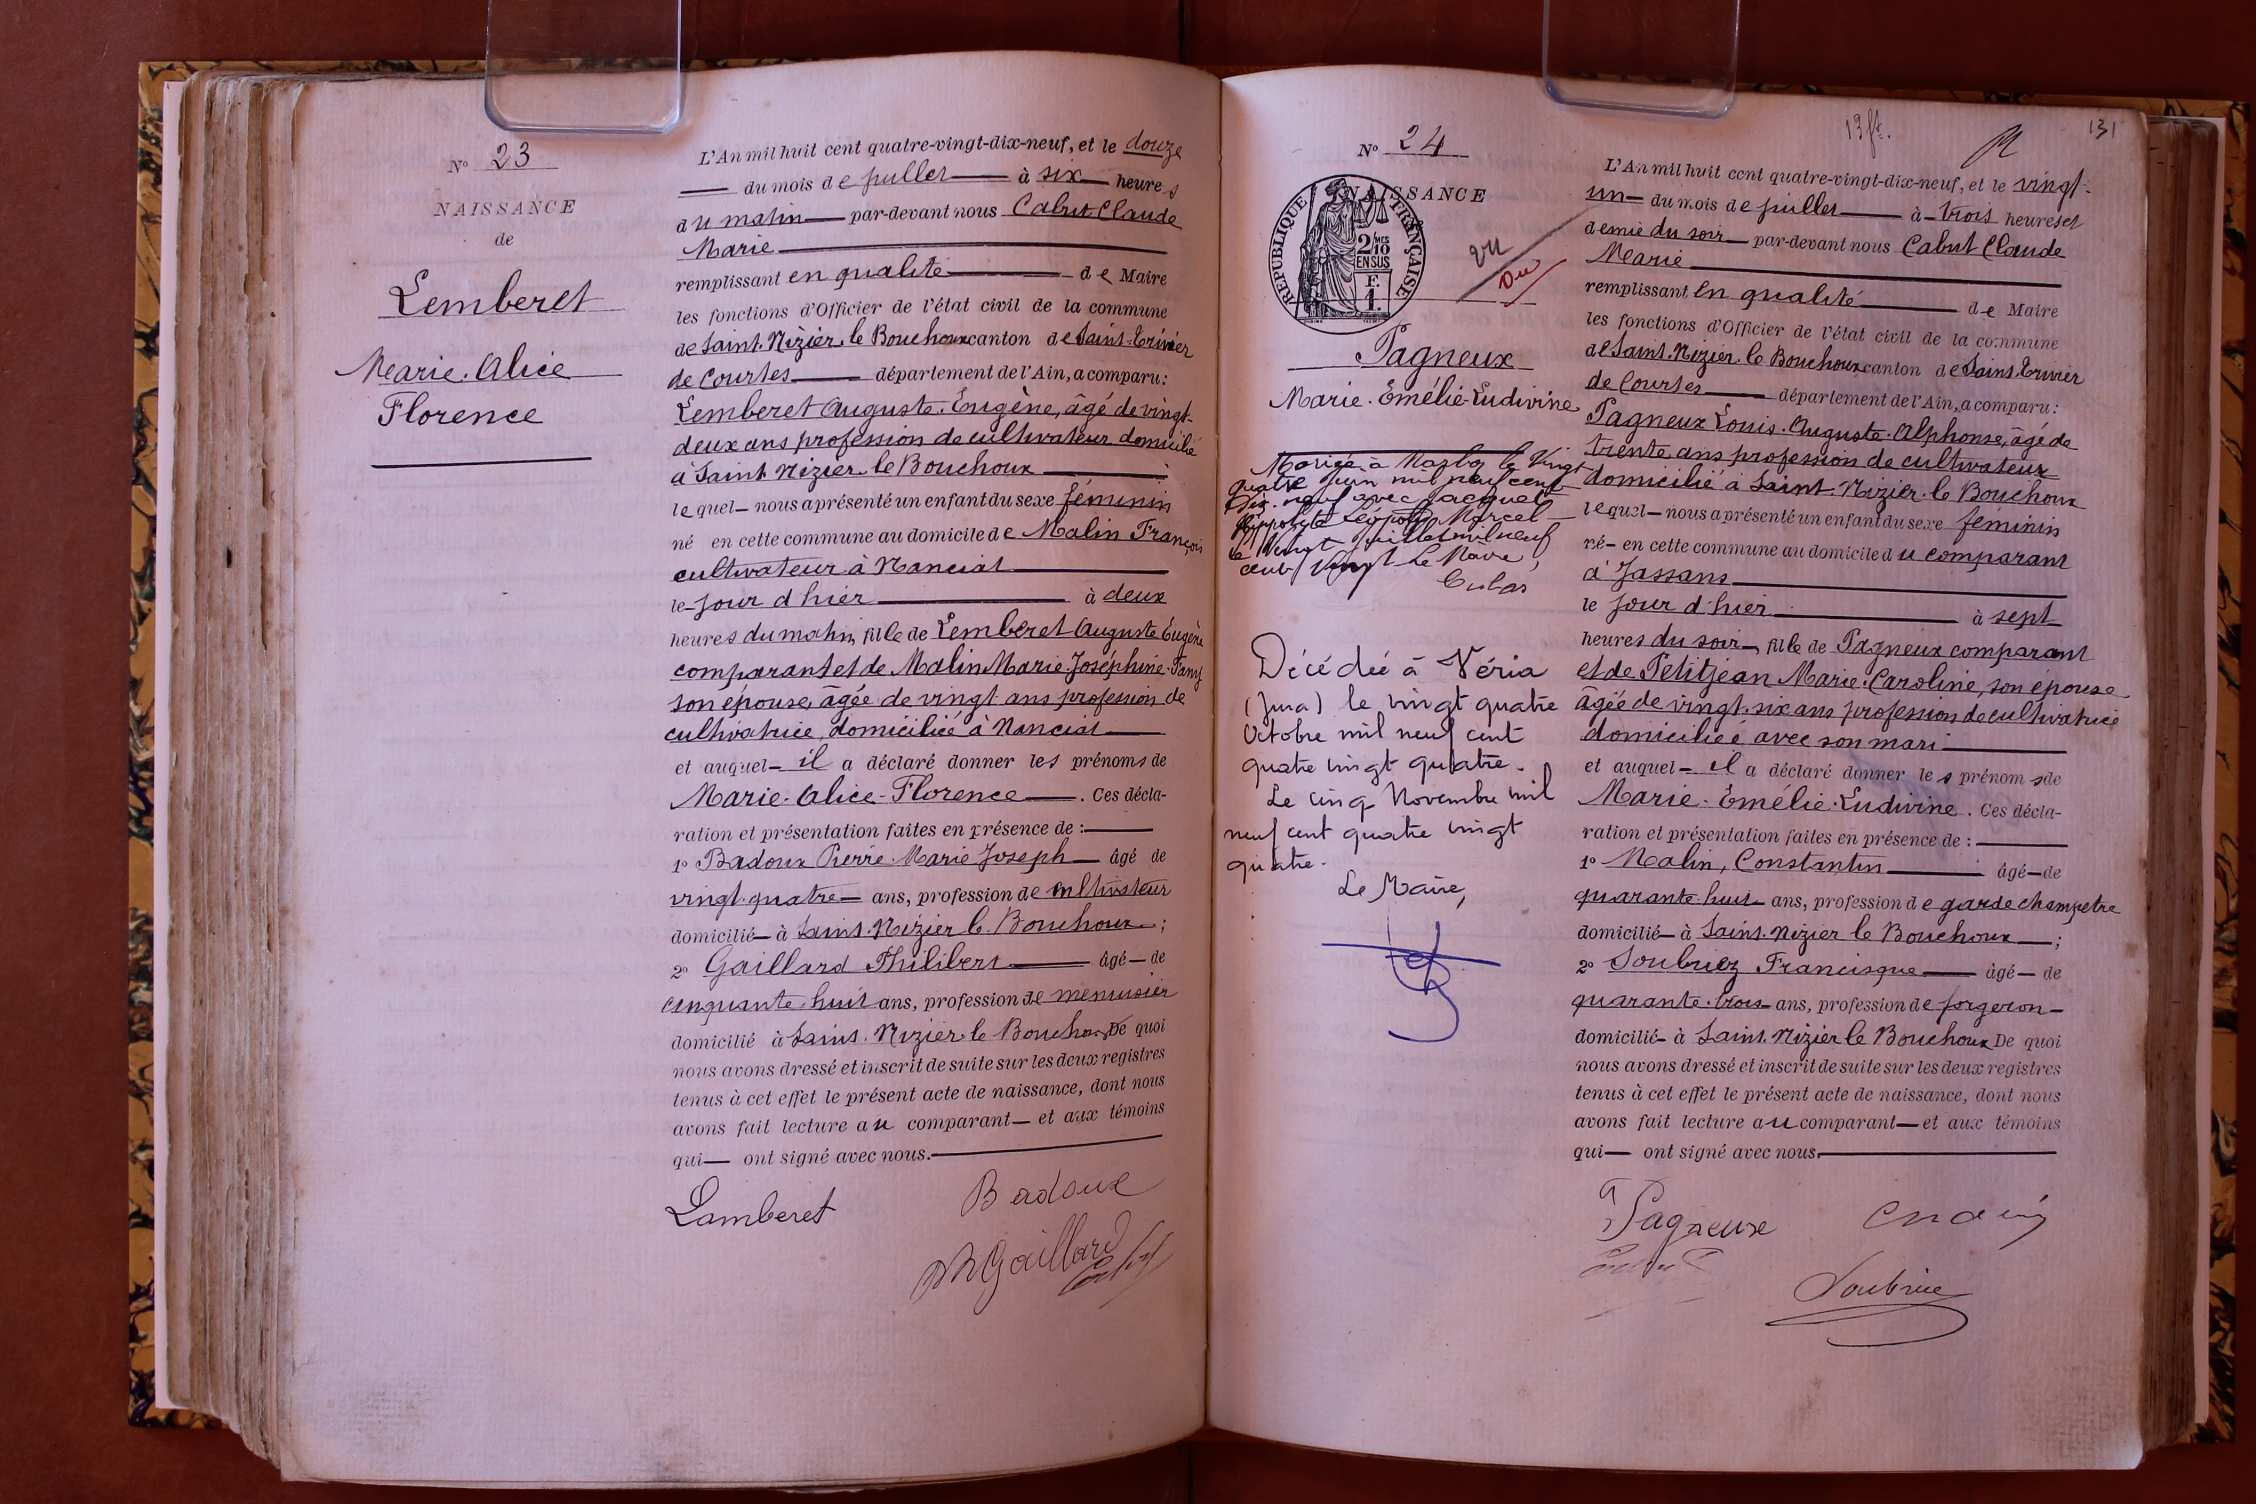 N° 23
NAISSANCE
de
Lemberet
Marie-Alice
Florence
L'An mil huit cent quatre-vingt-dix-neuf, et le douze
du mois de juillet à six heures
du matin par-devant nous Cabut Claude
Marie
remplissant en qualité de Maire
les fonctions d'Officier de l'état civil de la commune
de Saint-Nizier-le Bouchoux canton de Saint-Trivier
de Courtes département de l'Ain, a comparu :
Lemberet Auguste-Eugène, âgé de vingt-
deux ans profession de cultivateur domicilié
à Saint Nizier-le Bouchoux
lequel nous a présenté un enfant du sexe féminin
né en cette commune au domicile de Malin François
cultivateur à Nanciat
le jour d'hier à deux
heures du matin, fille de Lemberet Auguste Eugène
comparant et de Malin Marie-Joséphine-Fany
son épouse, âgée de vingt ans profession de
cultivatrice, domiciliée à Nanciat
et auquel il a déclaré donner les prénoms de
Marie-Alice-Florence. Ces décla-
ration et présentation faites en présence de :
1° Badoux Pierre-Marie Joseph âgé de
vingt-quatre ans, profession de cultivateur
domicilié à Saint-Nizier le Bouchoux ;
2° Gaillard Philibert âgé de
cinquante-huit ans, profession de menuisier
domicilié à Saint-Nizier-le Bouchoux De quoi
nous avons dressé et inscrit de suite sur les deux registres
tenus à cet effet le présent acte de naissance, dont nous
avons fait lecture au comparant et aux témoins
qui ont signé avec nous.
Lamberet Badoux
Gaillard
13 ft. 131
N° 24
NAISSANCE
RÉPUBLIQUE FRANÇAISE
2/10 MES
EN SUS
F.
1.
vu
Du
Pagneux
Marie-Emélie-Ludivine
Mariée à Marboz le Vingt
quatre juin mil neuf cent
dix-neuf avec Jacquet
Hippolyte Léopold Marcel
Le Vingt juillet mil neuf
cent vingt Le Maire,
Décédée à Véria
(Jura) le vingt quatre
Octobre mil neuf cent
quatre vingt quatre.
Le cinq Novembre mil
neuf cent quatre vingt
quatre.
Le Maire,
L'An mil huit cent quatre-vingt-dix-neuf, et le vingt-
un du mois de juillet à trois heures et
demie du soir par-devant nous Cabut Claude
Marie
remplissant en qualité de Maire
les fonctions d'Officier de l'état civil de la commune
de Saint-Nizier-le Bouchoux canton de Saint-Trivier
de Courtes département de l'Ain, a comparu :
Pagneux Louis-Auguste-Alphonse, âgé de
trente ans profession de cultivateur
domicilié à Saint-Nizier-le Bouchoux
lequel nous a présenté un enfant du sexe féminin
né en cette commune au domicile du comparant
à Jassans
le jour d'hier à sept
heures du soir, fille de Pagneux comparant
et de Petitjean Marie-Caroline, son épouse
âgée de vingt-six ans profession de cultivatrice
domiciliée avec son mari
et auquel il a déclaré donner les prénoms de
Marie-Emélie-Ludivine. Ces décla-
ration et présentation faites en présence de :
1° Malin, Constantin âgé de
quarante-huit ans, profession de garde champetre
domicilié à Saint-Nizier le Bouchoux ;
2° Soubriez Francisque âgé de
quarante-trois ans, profession de forgeron
domicilié à Saint-Nizier le Bouchoux De quoi
nous avons dressé et inscrit de suite sur les deux registres
tenus à cet effet le présent acte de naissance, dont nous
avons fait lecture au comparant et aux témoins
qui ont signé avec nous
Pagneux